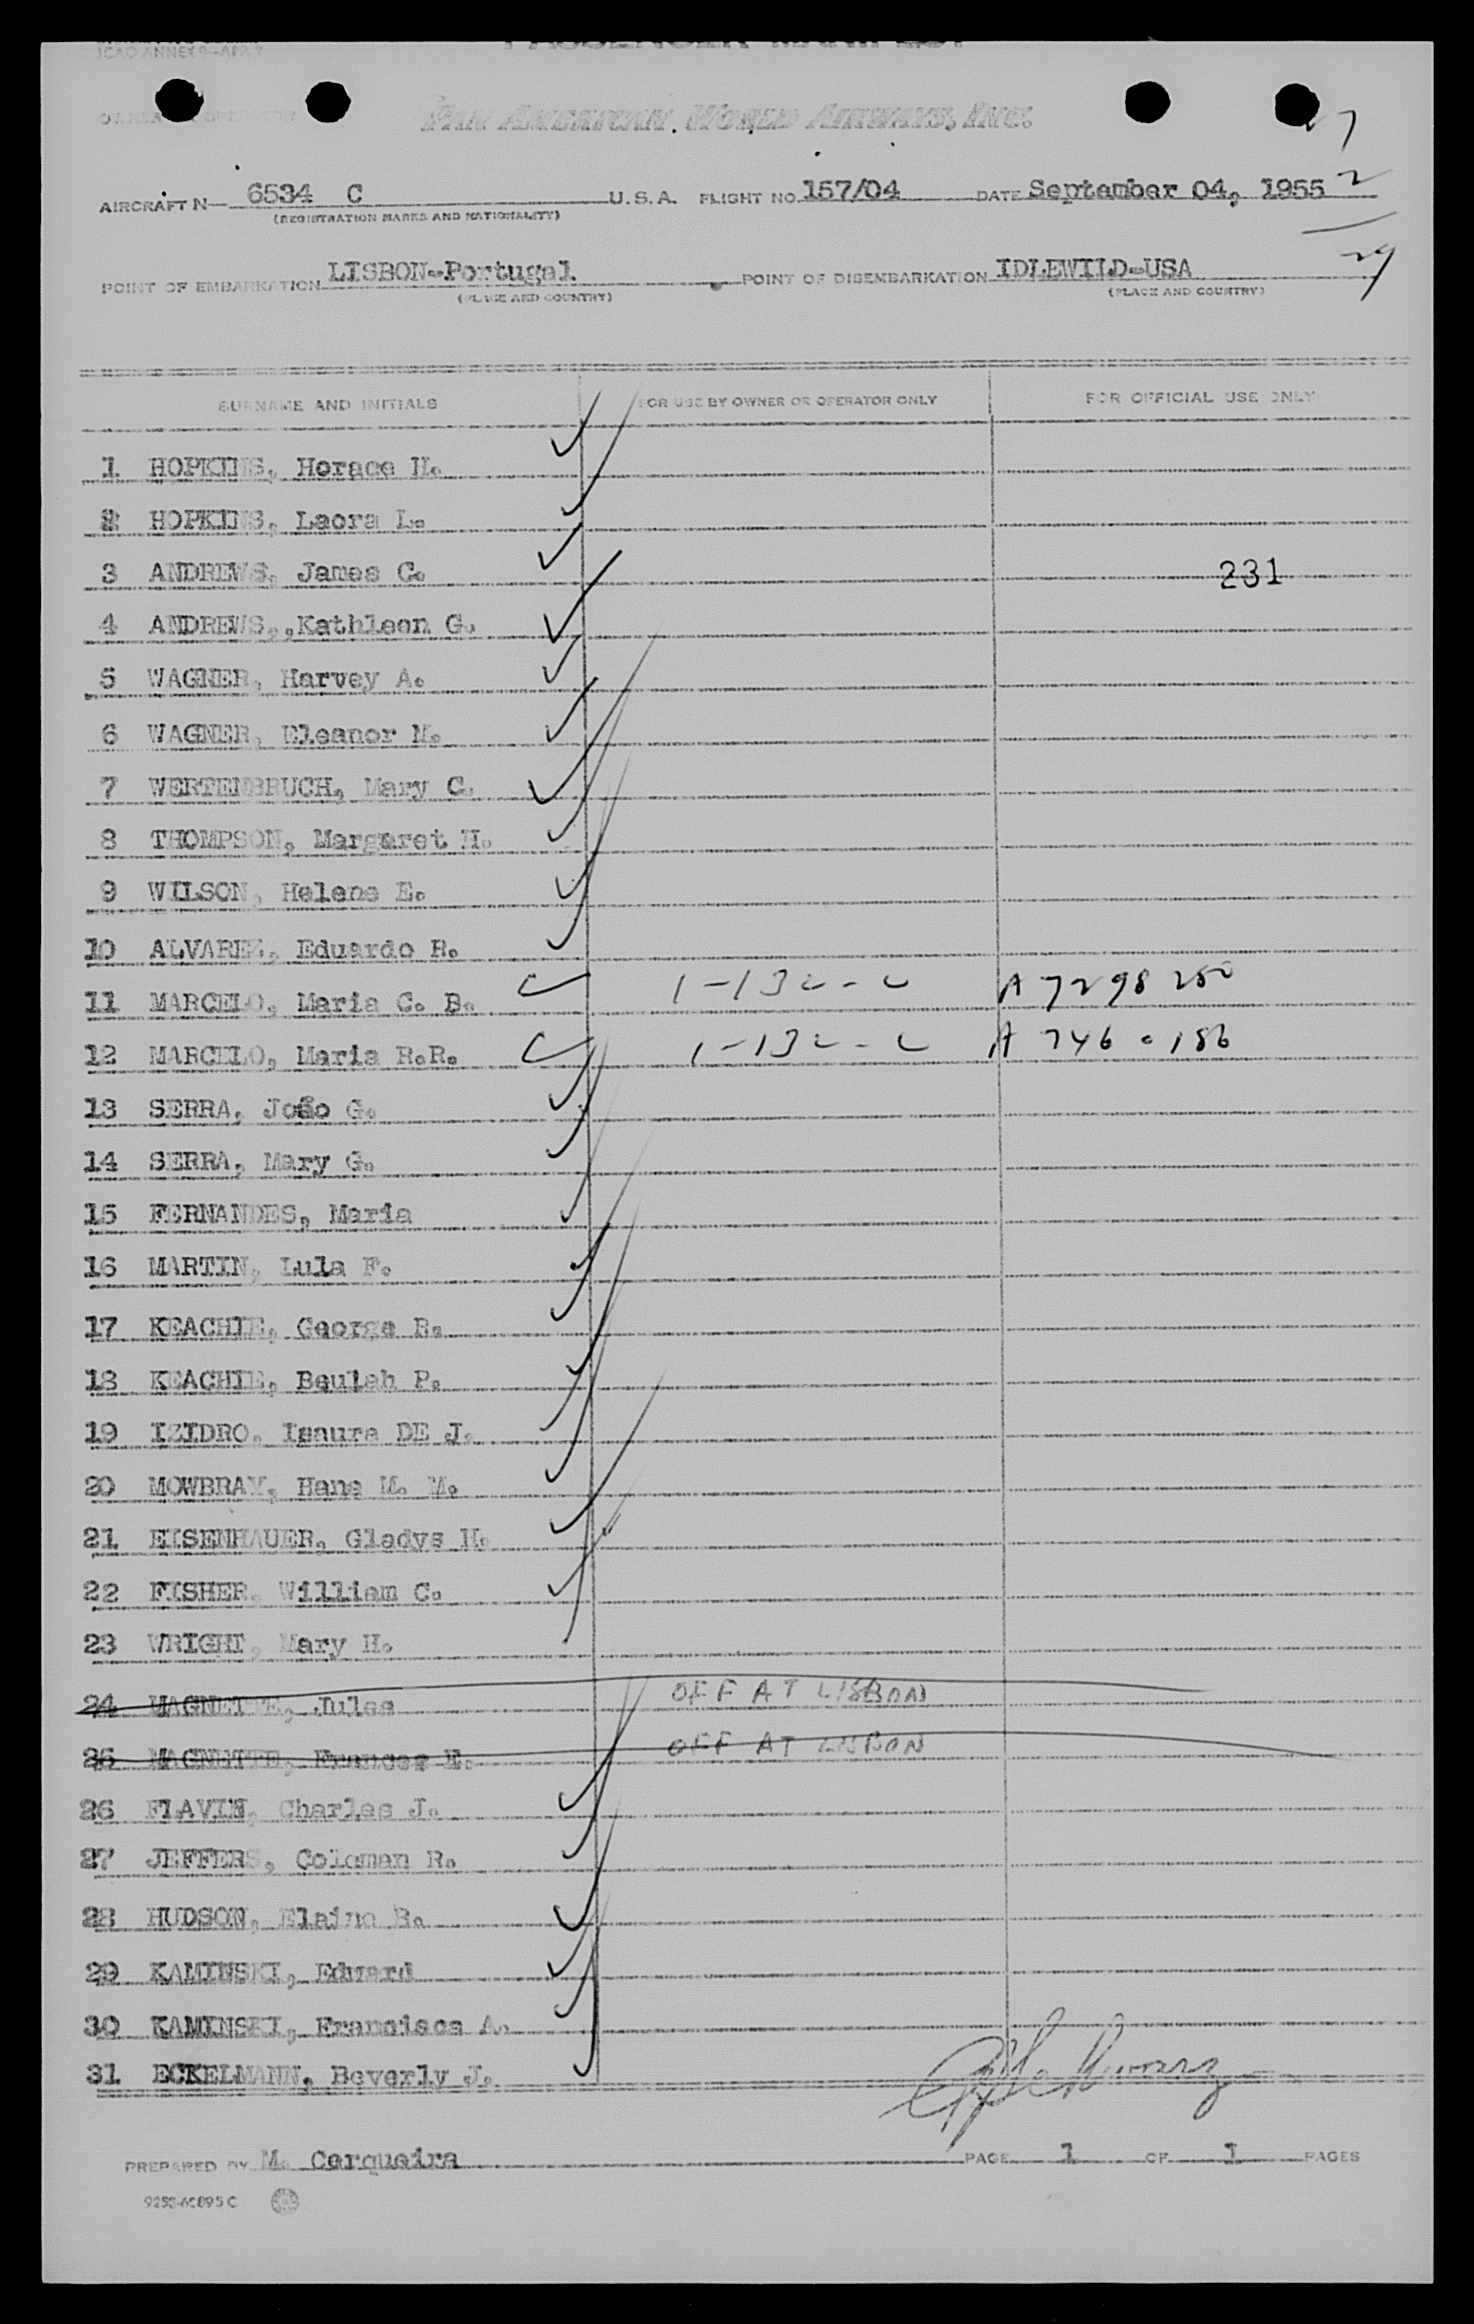 ICAO ANNEX 9—APP 7
PASSENGER MANIFEST
PAN AMERICAN WORLD AIRWAYS, INC.
27
AIRCRAFT N— 6534 C U.S.A. FLIGHT NO. 157/04 DATE September 04, 1955 2
(REGISTRATION MARKS AND NATIONALITY)
29
POINT OF EMBARKATION LISBON-Portugal POINT OF DISEMBARKATION IDLEWILD-USA
(PLACE AND COUNTRY) (PLACE AND COUNTRY)
SURNAME AND INITIALS FOR USE BY OWNER OR OPERATOR ONLY FOR OFFICIAL USE ONLY
1 HOPKINS, Horace H.
2 HOPKINS, Laora L.
3 ANDREWS, James C. 231
4 ANDREWS,,Kathleen G.
5 WAGNER, Harvey A.
6 WAGNER, Eleanor M.
7 WERTENBRUCH, Mary C.
8 THOMPSON, Margaret H.
9 WILSON, Helene E.
10 ALVAREZ, Eduardo R.
11 MARCELO, Maria C. B. 1-132-C A 7298 250
12 MARCELO, Maria R.R. 1-132-C A 746 0 186
13 SERRA, João G.
14 SERRA, Mary G.
15 FERNANDES, Maria
16 MARTIN, Lula F.
17 KEACHIE, George R.
18 KEACHIE, Beulah P.
19 IZIDRO, Isaura DE J.
20 MOWBRAY, Hans M. M.
21 EISENHAUER, Gladys H.
22 FISHER, William C.
23 WRIGHT, Mary H.
24 MAGNETTE, Jules OFF AT LISBON
25 MAGNETTE, Frances E. OFF AT LISBON
26 FLAVIN, Charles J.
27 JEFFERS, Coleman R.
28 HUDSON, Elaine B.
29 KAMINSKI, Eduard
30 KAMINSKI, Francisca A.
31 ECKELMANN, Beverly J.
PREPARED BY M. Cerqueira PAGE 1 OF 1 PAGES